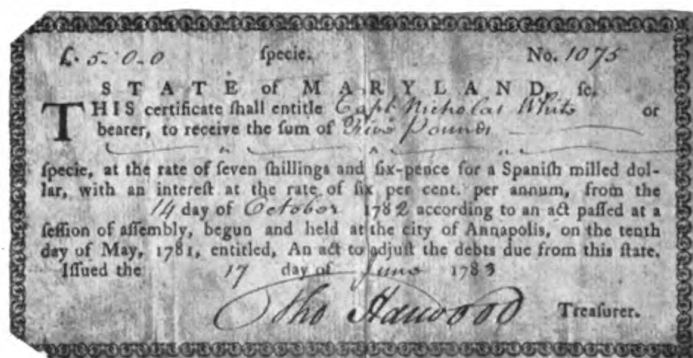 £. 5-0-0 ſpecie. No. 1075
STATE of MARYLAND, ſc.
THIS certificate ſhall entitle Capt. Nicholas White or
bearer, to receive the ſum of Five Pounds
ſpecie, at the rate of ſeven ſhillings and ſix-pence for a Spaniſh milled dol-
lar, with an intereſt at the rate of ſix per cent. per annum, from the
14 day of October 1782 according to an act paſſed at a
ſeſſion of aſſembly, begun and held at the city of Annapolis, on the tenth
day of May, 1781, entitled, An act to adjuſt the debts due from this ſtate.
Iſſued the 17 day of June 1783
Tho Harwood Treaſurer.